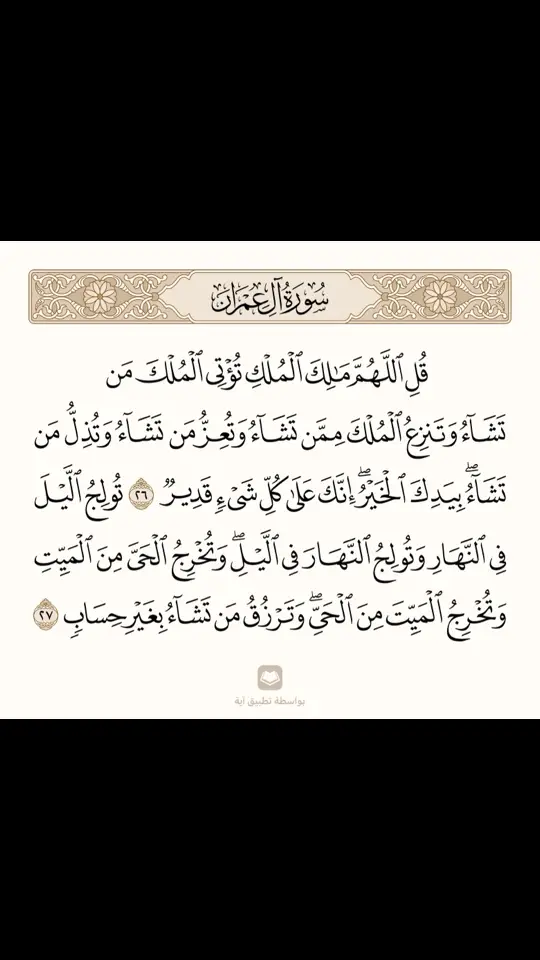 سُورَةُ آلِ عِمْرَان
قُلِ ٱللَّهُمَّ مَٰلِكَ ٱلْمُلْكِ تُؤْتِى ٱلْمُلْكَ مَن
تَشَآءُ وَتَنزِعُ ٱلْمُلْكَ مِمَّن تَشَآءُ وَتُعِزُّ مَن تَشَآءُ وَتُذِلُّ مَن
تَشَآءُۖ بِيَدِكَ ٱلْخَيْرُۖ إِنَّكَ عَلَىٰ كُلِّ شَىْءٍ قَدِيرٌ ٢٦ تُولِجُ ٱلَّيْلَ
فِى ٱلنَّهَارِ وَتُولِجُ ٱلنَّهَارَ فِى ٱلَّيْلِۖ وَتُخْرِجُ ٱلْحَىَّ مِنَ ٱلْمَيِّتِ
وَتُخْرِجُ ٱلْمَيِّتَ مِنَ ٱلْحَىِّۖ وَتَرْزُقُ مَن تَشَآءُ بِغَيْرِ حِسَابٍ ٢٧
بواسطة تطبيق آية